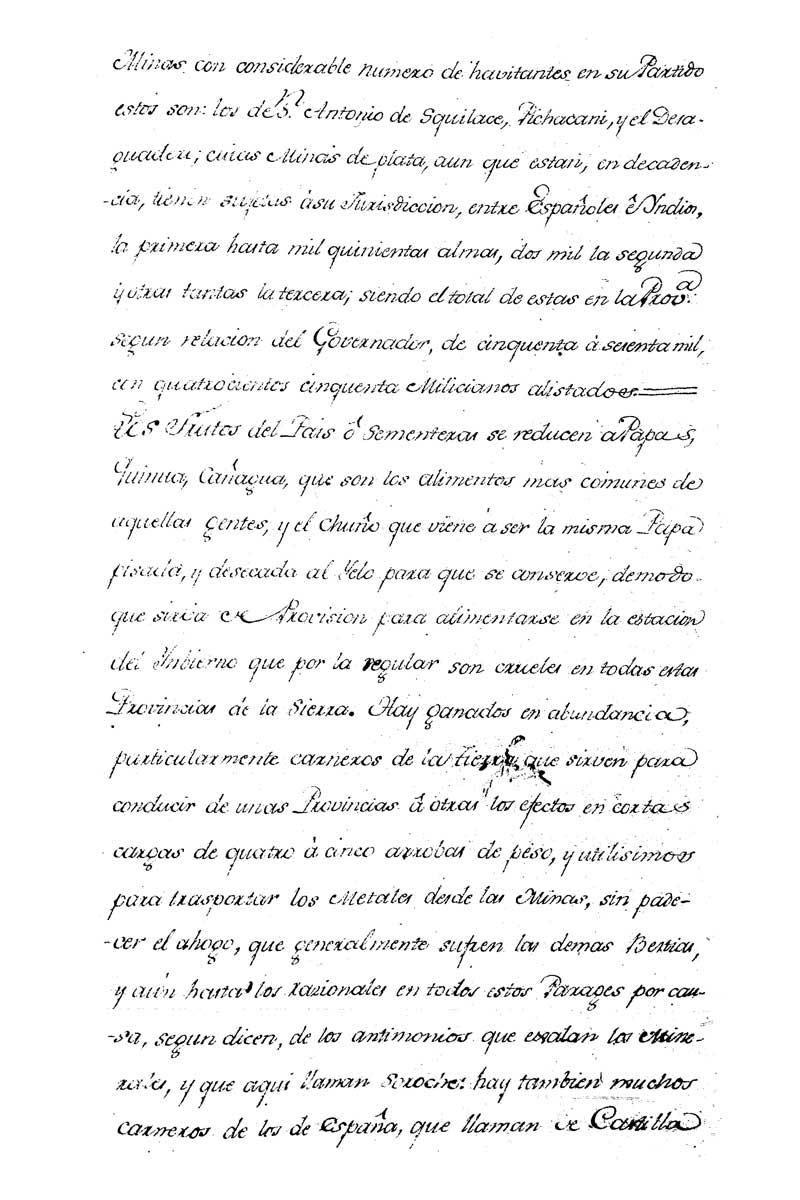 Minas con considerable numero de havitantes en su Partido
estos son: los de Sn. Antonio de Squilace, Pichacani, y el Desa-
guadero; cuias Minas de plata, aun que estan, en decaden-
-cia, tienen sujetas à su Jurisdiccion, entre Españoles è Yndios,
la primera hasta mil quinientas almas, dos mil la segunda
y otras tantas la tercera; siendo el total de estas en la Prova.
segun relacion del Governador, de cinquenta à sesenta mil,
con quatrocientos cinquenta Milicianos alistados.
Los Frutos del Pais ô Sementeras se reducen a Papas,
Quinua, Cañagua, que son los alimentos mas comunes de
aquellas gentes, y el chuño que viene à ser la misma Papa
pisada, y desecada al Yelo para que se conserve, demodo
que sirva de Provision para alimentarse en la estacion
del Ynbierno que por la regular son crueles en todas estas
Provincias de la Sierra. Hay ganados en abundancia,
particularmente carneros de la tierra que sirven para
conducir de unas Provincias â otras los efectos en cortas
cargas de quatro à cinco arrobas de peso, y utilisimos
para trasportar los Metales desde las Minas, sin pade-
-cer el ahogo, que generalmente sufren las demas Bestias,
y aun hasta los razionales en todos estos Parages por cau-
-sa, segun dicen, de los antimonios que exalan los Mine-
rales, y que aqui llaman Soroche: hay tambien muchos
carneros de los de España, que llaman de Castilla